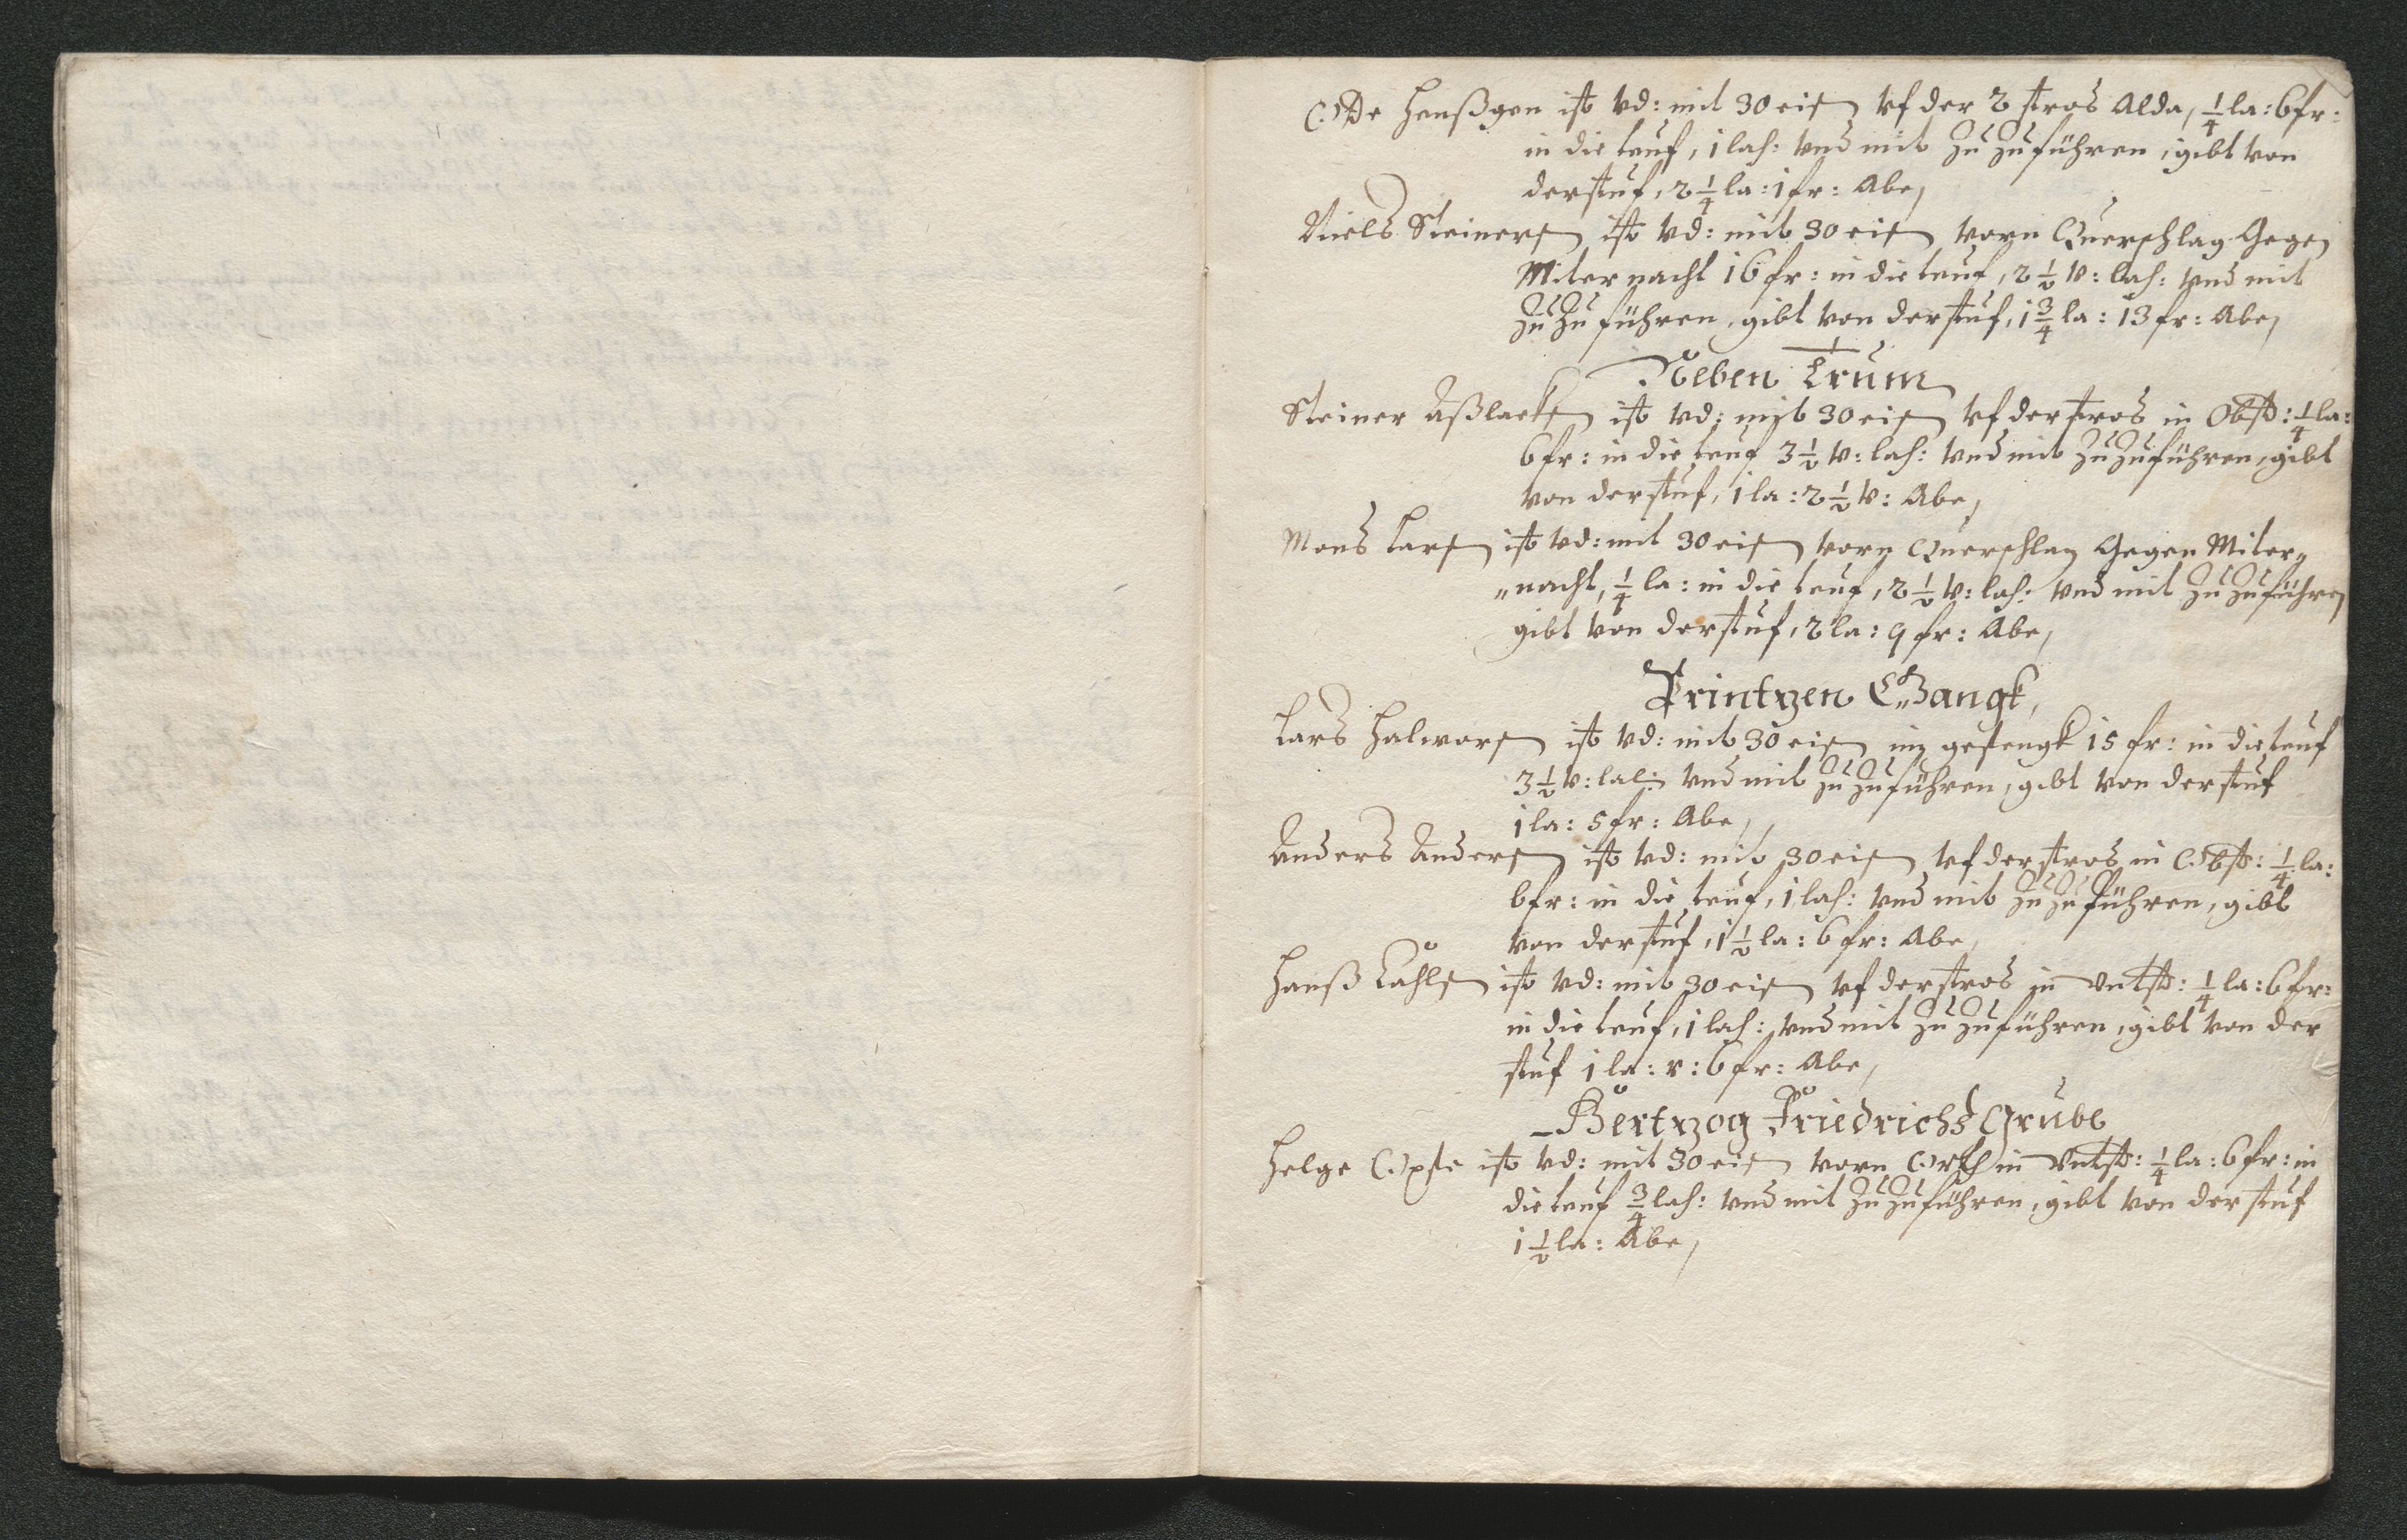 Ode Henßgen ist vd: mit 30 eisn vf der 2 stros Alda, 1/4 la: 6 fr:
in die teuf, 1 lah: vnd mit Zu Zu führen, gibt von
der stuf, 2 1/4 la: 1 fr: Abe,
Niels Steinersn ist vd: mit 30 eisn vorn Querschlag Gegen
Miternacht 16 fr: in die teuf, 2 1/2 v: lah: vnd mit
Zu Zu führen, gibt von der stuf, 1 3/4 la: 13 fr: Abe,
Neben Trum
Steiner Aßlacksn ist vd: mit 30 eisn vf der stros in Obst: 1/4 la:
6 fr: in die teuf 3 1/2 v: lah: vnd mit Zu Zu führen, gibt
von der stuf, 1 la: 2 1/2 v: Abe,
Mons Larsn ist vd: mit 30 eisn vorn Querschlag Gegen Miter„
„nacht, 1/4 la: in die teuf, 2 1/2 v: lah: vnd mit Zu Zu führen
gibt von der stuf, 2 la: 9 fr: Abe,
Printzen Gangk,
Lars Halworsn ist vd: mit 30 eisn im gesengk 15 fr: in die teuf
3 1/2 v: lah: vnd mit Zu Zu führen, gibt von der stuf
1 la: 5 fr: Abe,
Anders Andersn ist vd: mit 30 eisn vf der stros in Obst: 1/4 la:
6 fr: in die teuf, 1 lah: vnd mit Zu Zu führen, gibt
von der stuf, 1 1/2 la: 6 fr: Abe,
Hanß Kåhlsn ist vd: mit 30 eisn vf der stros in Vntst: 1/4 la: 6 fr:
in die teuf, 1 lah: vnd mit Zu Zu führen, gibt von der
stuf 1 la: v: 6 fr: Abe,
Hertzog Friedrichs Grube
Helge ist vd: mit 30 eisn vorn Orth in Vntst: 1/4 la: 6 fr: in
die teuf 3/4 lah: vnd mit Zu Zu führen, gibt von der stuf
1 1/2 la: Abe,